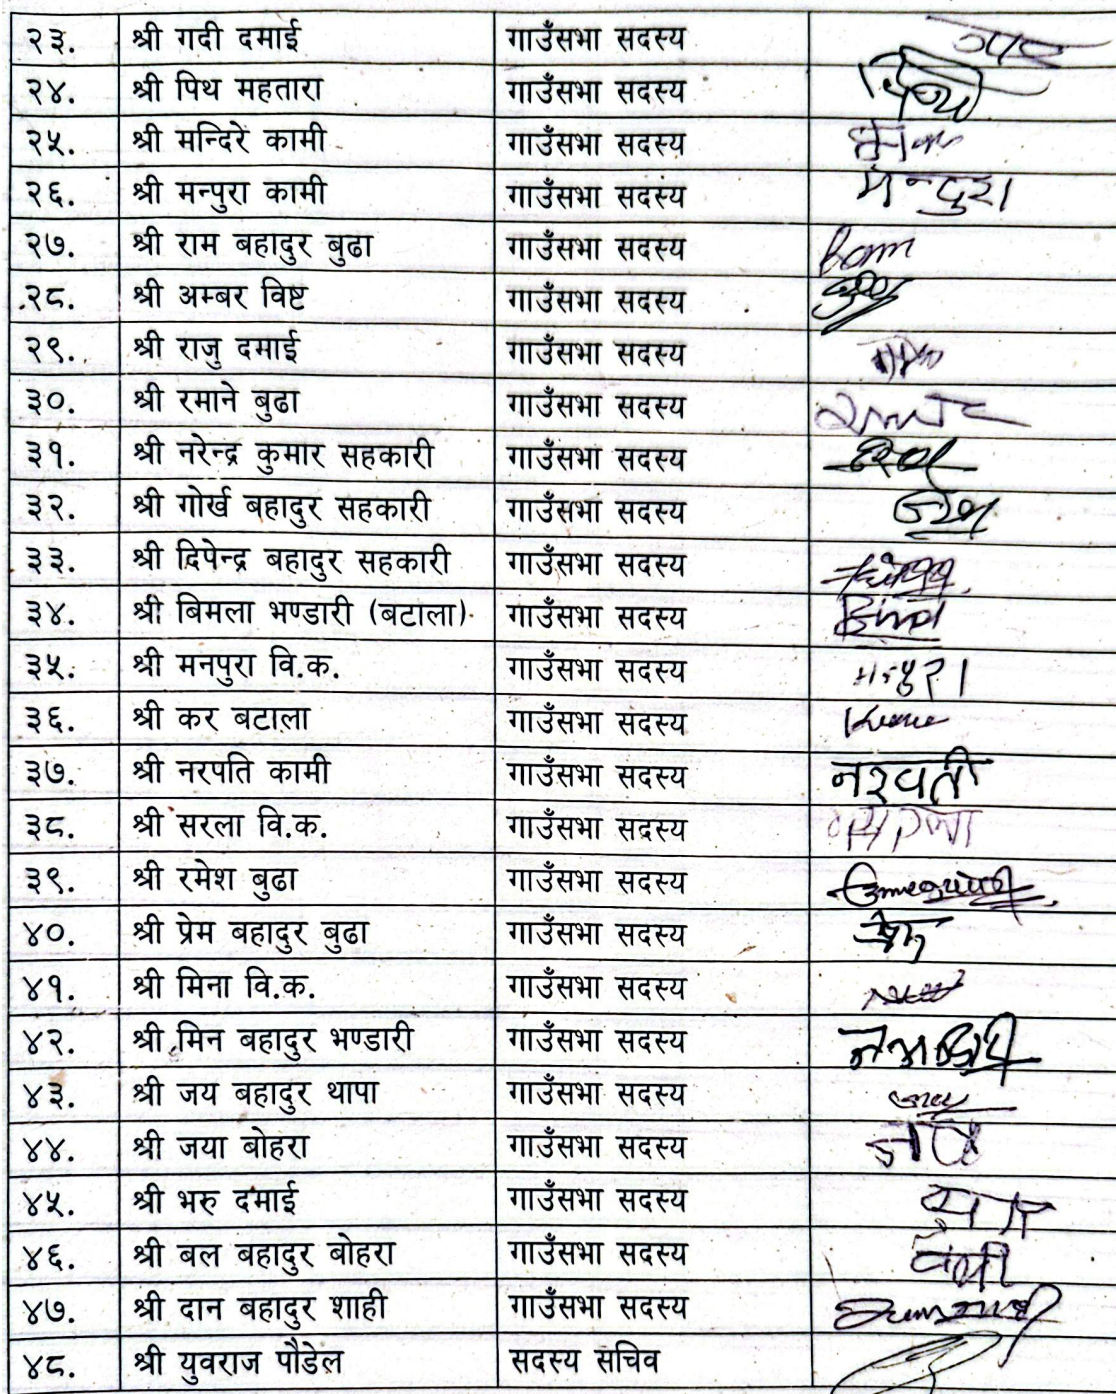 २३. श्री गदी दमाई गाउँसभा सदस्य
२४. श्री पिथ महतारा गाउँसभा सदस्य
२५. श्री मन्दिरे कामी गाउँसभा सदस्य
२६. श्री मन्पुरा कामी गाउँसभा सदस्य
२७. श्री राम बहादुर बुढा गाउँसभा सदस्य Ram
२८. श्री अम्बर विष्ट गाउँसभा सदस्य
२९. श्री राजु दमाई गाउँसभा सदस्य
३०. श्री रमाने बुढा गाउँसभा सदस्य
३१. श्री नरेन्द्र कुमार सहकारी गाउँसभा सदस्य
३२. श्री गोर्ख बहादुर सहकारी गाउँसभा सदस्य
३३. श्री दिपेन्द्र बहादुर सहकारी गाउँसभा सदस्य
३४. श्री बिमला भण्डारी (बटाला) गाउँसभा सदस्य
३५. श्री मनपुरा वि.क. गाउँसभा सदस्य
३६. श्री कर बटाला गाउँसभा सदस्य
३७. श्री नरपति कामी गाउँसभा सदस्य नरपती
३८. श्री सरला वि.क. गाउँसभा सदस्य
३९. श्री रमेश बुढा गाउँसभा सदस्य
४०. श्री प्रेम बहादुर बुढा गाउँसभा सदस्य प्रेम
४१. श्री मिना वि.क. गाउँसभा सदस्य
४२. श्री मिन बहादुर भण्डारी गाउँसभा सदस्य
४३. श्री जय बहादुर थापा गाउँसभा सदस्य
४४. श्री जया बोहरा गाउँसभा सदस्य
४५. श्री भरु दमाई गाउँसभा सदस्य
४६. श्री बल बहादुर बोहरा गाउँसभा सदस्य
४७. श्री दान बहादुर शाही गाउँसभा सदस्य
४८. श्री युवराज पौडेल सदस्य सचिव